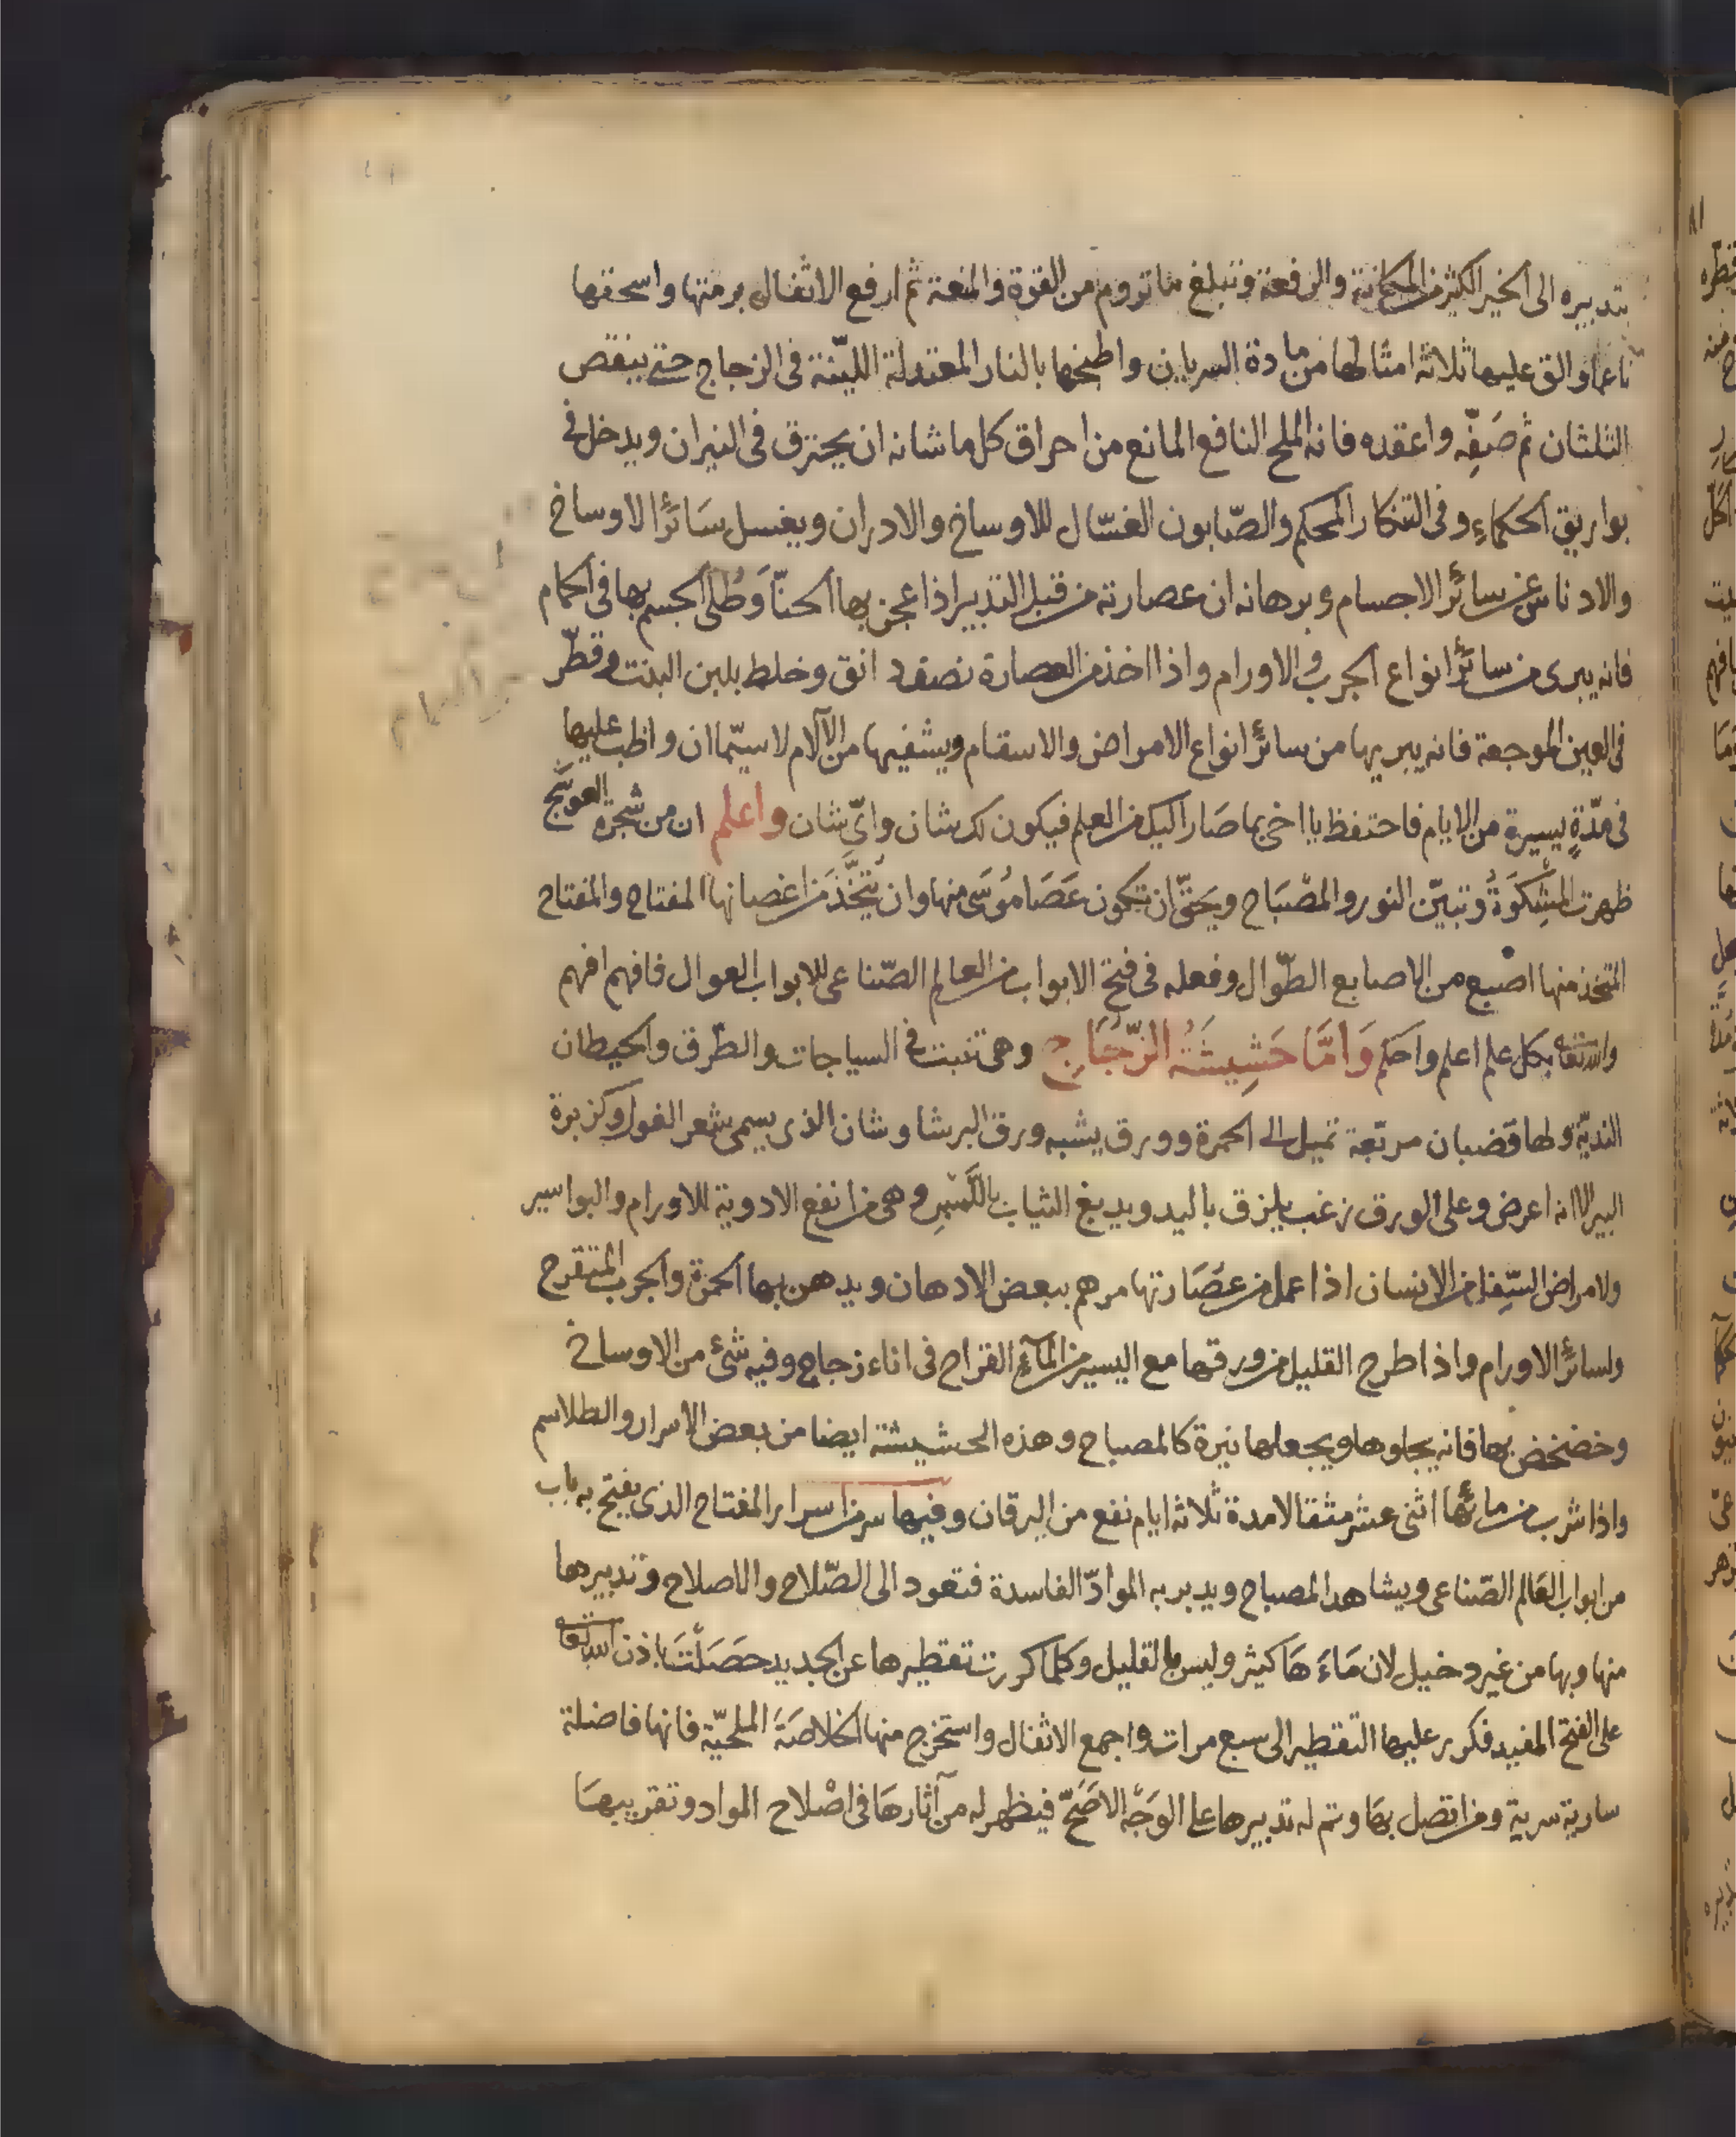 بتدبيره الى الخير الكثير من المكانة والرفعة وتبلغ ما تروم من القوة والمنعة ثم ارفع الاثفال برمتها واسحقها
ناعما والق عليها ثلاثة امثالها من مادة السريان واطبخها بالنار المعتدلة اللينة فى الزجاج حتى ينقص
الثلثان ثم صَفِّه واعقده فانه الملح النافع المانع من احراق كل ما شانه ان يحترق فى النيران ويدخل فى
بواريق الحكماء وفى التنكار المحكم والصّابون الغسّال للاوساخ والادران ويغسل سَائر الاوساخ
والادناس عن سائر الاجسام وبرهانه ان عصارته من قبل التدبير اذا عجن بها الحنّا وَطُلى الجسم بها فى الحمام
فانه يبرى من سائر انواع الجرب والاورام واذا اخذ من العصارة نصف دانق وخلط بلبن البنت وقطّر
فى العين الموجعة فانه يبريها من سائر انواع الامراض والاسقام ويشفيها من الآلام لا سيّما ان واظب عليها
فى مدّةٍ يسيرة من الايام فاحتفظ يا اخى بما صَار اليك من العلم فيكون لك شان واىّ شان واعلم ان من شجرة العوسَج
ظهرت المشِكَوٰةُ وتبيّن النور والمصْبَاح ويَحِقّ ان تكون عَصَا مُوسَى منها وان يُتَّخَذَ من اغصانها المفتاح والمفتاح
المتخذ منها اصبع من الاصابع الطّوال وفعله فى فتح الابواب من العالم الصّناعى للابواب العوال فافهم افهم
والله تعا بكل علم اعلم واحكم وَامَّا حَشِيشَةُ الزّجَاج وهى تنبت فى السياجات والطّرق والحيطان
النديّة ولها قضبان مربّعة تميل الى الحمرة وورق يشبه ورق البرشاوشان الذى يسمى شعر الغول وكزبرة
البير الا انه اعرض وعلى الورق زغب يلزق باليد ويدبغ الثياب باللَّمسِ وهى من انفع الادوية للاورام والبواسير
ولامراض السّفل من الانسان اذا عمل من عصَارتها مرهم ببعض الادهان ويدهن بها الحمرة والجرب المتقرح
ولسائر الاورام واذا طرح القليل من ورقها مع اليسير من المآء القراح فى اناء زجاج وفيه شئ من الاوساخ
وخضخض بها فانه يجلوها ويجعلها نيرة كالمصباح وهذه الحشيشة ايضا من بعض الاسرار والطلاسم
واذا شرب من مائها اثنى عشر مثقالا مدة ثلاثة ايام نفع من اليرقان وفيها سر من اسرار المفتاح الذى يفتح به باب
من ابواب العَالم الصّناعى ويشاهد المصباح ويدبر به الموادّ الفاسدة فتعود الى الصّلاح والاصلاح وتدبيرها
منها وبها من غير دخيل لان مَاءَهَا كثير وليس بالقليل وكلما كررت تقطيرها عن الجديد حصَلْتَ باذن الله تعا
على الفتح المفيد فكرر عليها التقطير الى سبع مرات واجمع الاثفال واستخرج منها الخلاصَة الملحيّة فانها فاضلة
سارية سرية ومن اتصل بهَا وتم له تدبيرها على الوَجْه الاصَحّ فيظهر له من آثارهَا فى اصْلاح المواد وتقريبهَا